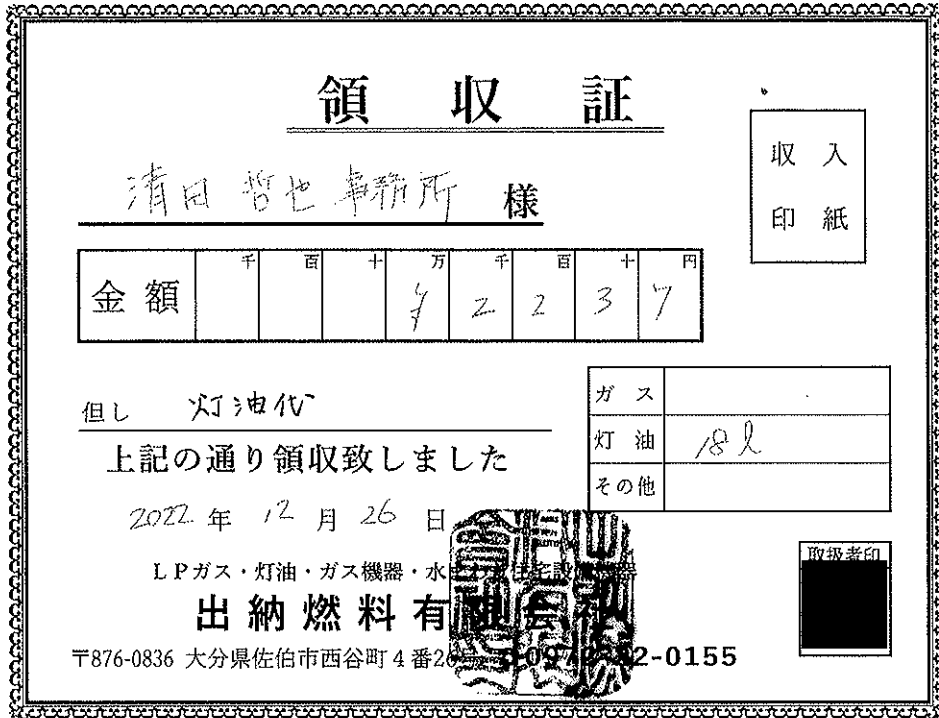 領収証
収入
印紙
清田哲也事務所 様
金額 千 百 十 万 千 百 十 円
¥2237
但し 灯油代
ガス
灯油 18ℓ
その他
上記の通り領収致しました
2022年12月26日
取扱者印
LPガス・灯油・ガス機器・水
出納燃料有限会社
〒876-0836 大分県佐伯市西谷町4番2
2-0155